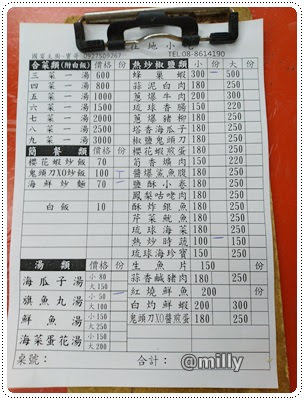 在地小
國富主廚-
TEL08-8614190
合菜類(附白飯) 價格 份
三菜一湯 600
四菜一湯 800
五菜一湯 1000
六菜一湯 1500
七菜一湯 2000
八菜一湯 2500
九菜一湯 3000
簡餐類 價格 份
櫻花蝦炒飯 70
鬼頭刀XO炒飯 100
海鮮炒麵 70
白飯 10
湯類 價格 份
海瓜子湯 小80 大150
旗魚丸湯 小50
鮮魚湯
海菜蛋花湯 大200
桌號：
熱炒椒鹽類 小 份 大 份
蜂巢蝦 300 500
蒜泥白肉 180 250
蔥爆牛肉 200 300
琉球香腸 150 220
蔥爆豬柳 180 250
塔香海瓜子 180 250
椒鹽鬼頭刀 180 250
櫻花蝦煎蛋 180 250
筍香爌肉 150 250
醬爆鯊魚腹 180 250
鹽酥小卷 180 250
鳳梨咕咾肉 180 250
酥炸銀魚 180 250
芹菜魷魚 180 250
琉球海菜 180 250
熱炒時蔬 100 150
琉球海珍寶 150 250
生魚片 150 份
蒜香鹹豬肉 180 250
紅燒鮮魚 200 份
白灼鮮蝦 200 300
鬼頭刀XO醬煎蛋 180 250
合計：
@milly